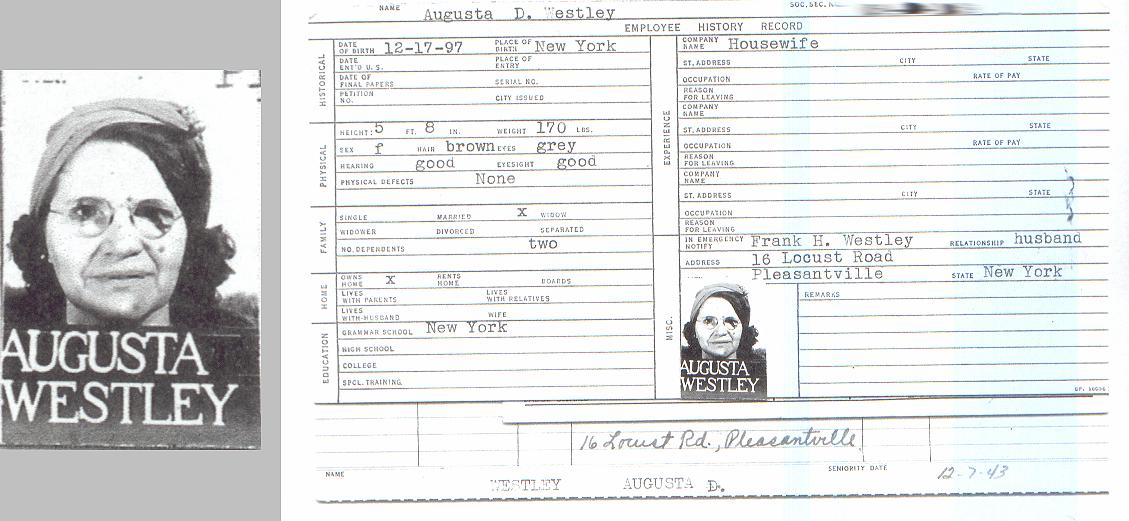 AUGUSTA
WESTLEY
NAME Augusta D. Westley SOC. SEC. N
EMPLOYEE HISTORY RECORD
HISTORICAL
DATE OF BIRTH 12-17-97 PLACE OF BIRTH New York
DATE ENT'D U.S. PLACE OF ENTRY
DATE OF FINAL PAPERS SERIAL NO.
PETITION NO. CITY ISSUED
PHYSICAL
HEIGHT: 5 FT. 8 IN. WEIGHT 170 LBS.
SEX f HAIR brown EYES grey
HEARING good EYESIGHT good
PHYSICAL DEFECTS None
FAMILY
SINGLE MARRIED X WIDOW
WIDOWER DIVORCED SEPARATED
NO. DEPENDENTS two
HOME
OWNS HOME X RENTS HOME BOARDS
LIVES WITH PARENTS LIVES WITH RELATIVES
LIVES WITH-HUSBAND WIFE
EDUCATION
GRAMMAR SCHOOL New York
HIGH SCHOOL
COLLEGE
SPCL. TRAINING
EXPERIENCE
COMPANY NAME Housewife
ST. ADDRESS CITY STATE
OCCUPATION RATE OF PAY
REASON FOR LEAVING
COMPANY NAME
ST. ADDRESS CITY STATE
OCCUPATION RATE OF PAY
REASON FOR LEAVING
COMPANY NAME
ST. ADDRESS CITY STATE
OCCUPATION
REASON FOR LEAVING
MISC.
IN EMERGENCY NOTIFY Frank H. Westley RELATIONSHIP husband
ADDRESS 16 Locust Road
Pleasantville STATE New York
REMARKS
AUGUSTA
WESTLEY
16 Locust Rd., Pleasantville
NAME WESTLEY AUGUSTA D. SENIORITY DATE 12-7-43